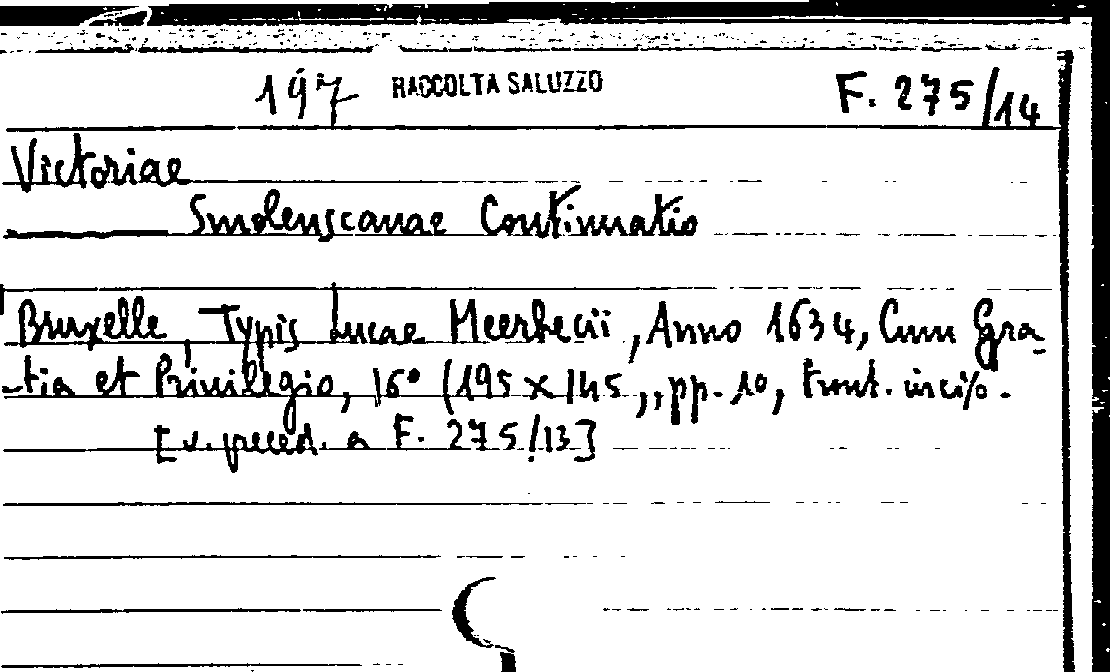 197 RACCOLTA SALUZZO F. 275/14
Victoriae
Smolenscanae Continuatio
Bruxelle, Typis Lucae Meerbecii, Anno 1634, Cum Gra-
-tia et Privilegio, 16° (195 x 145,, pp. 10, front. incis.
[v. preced. a F. 275/13]